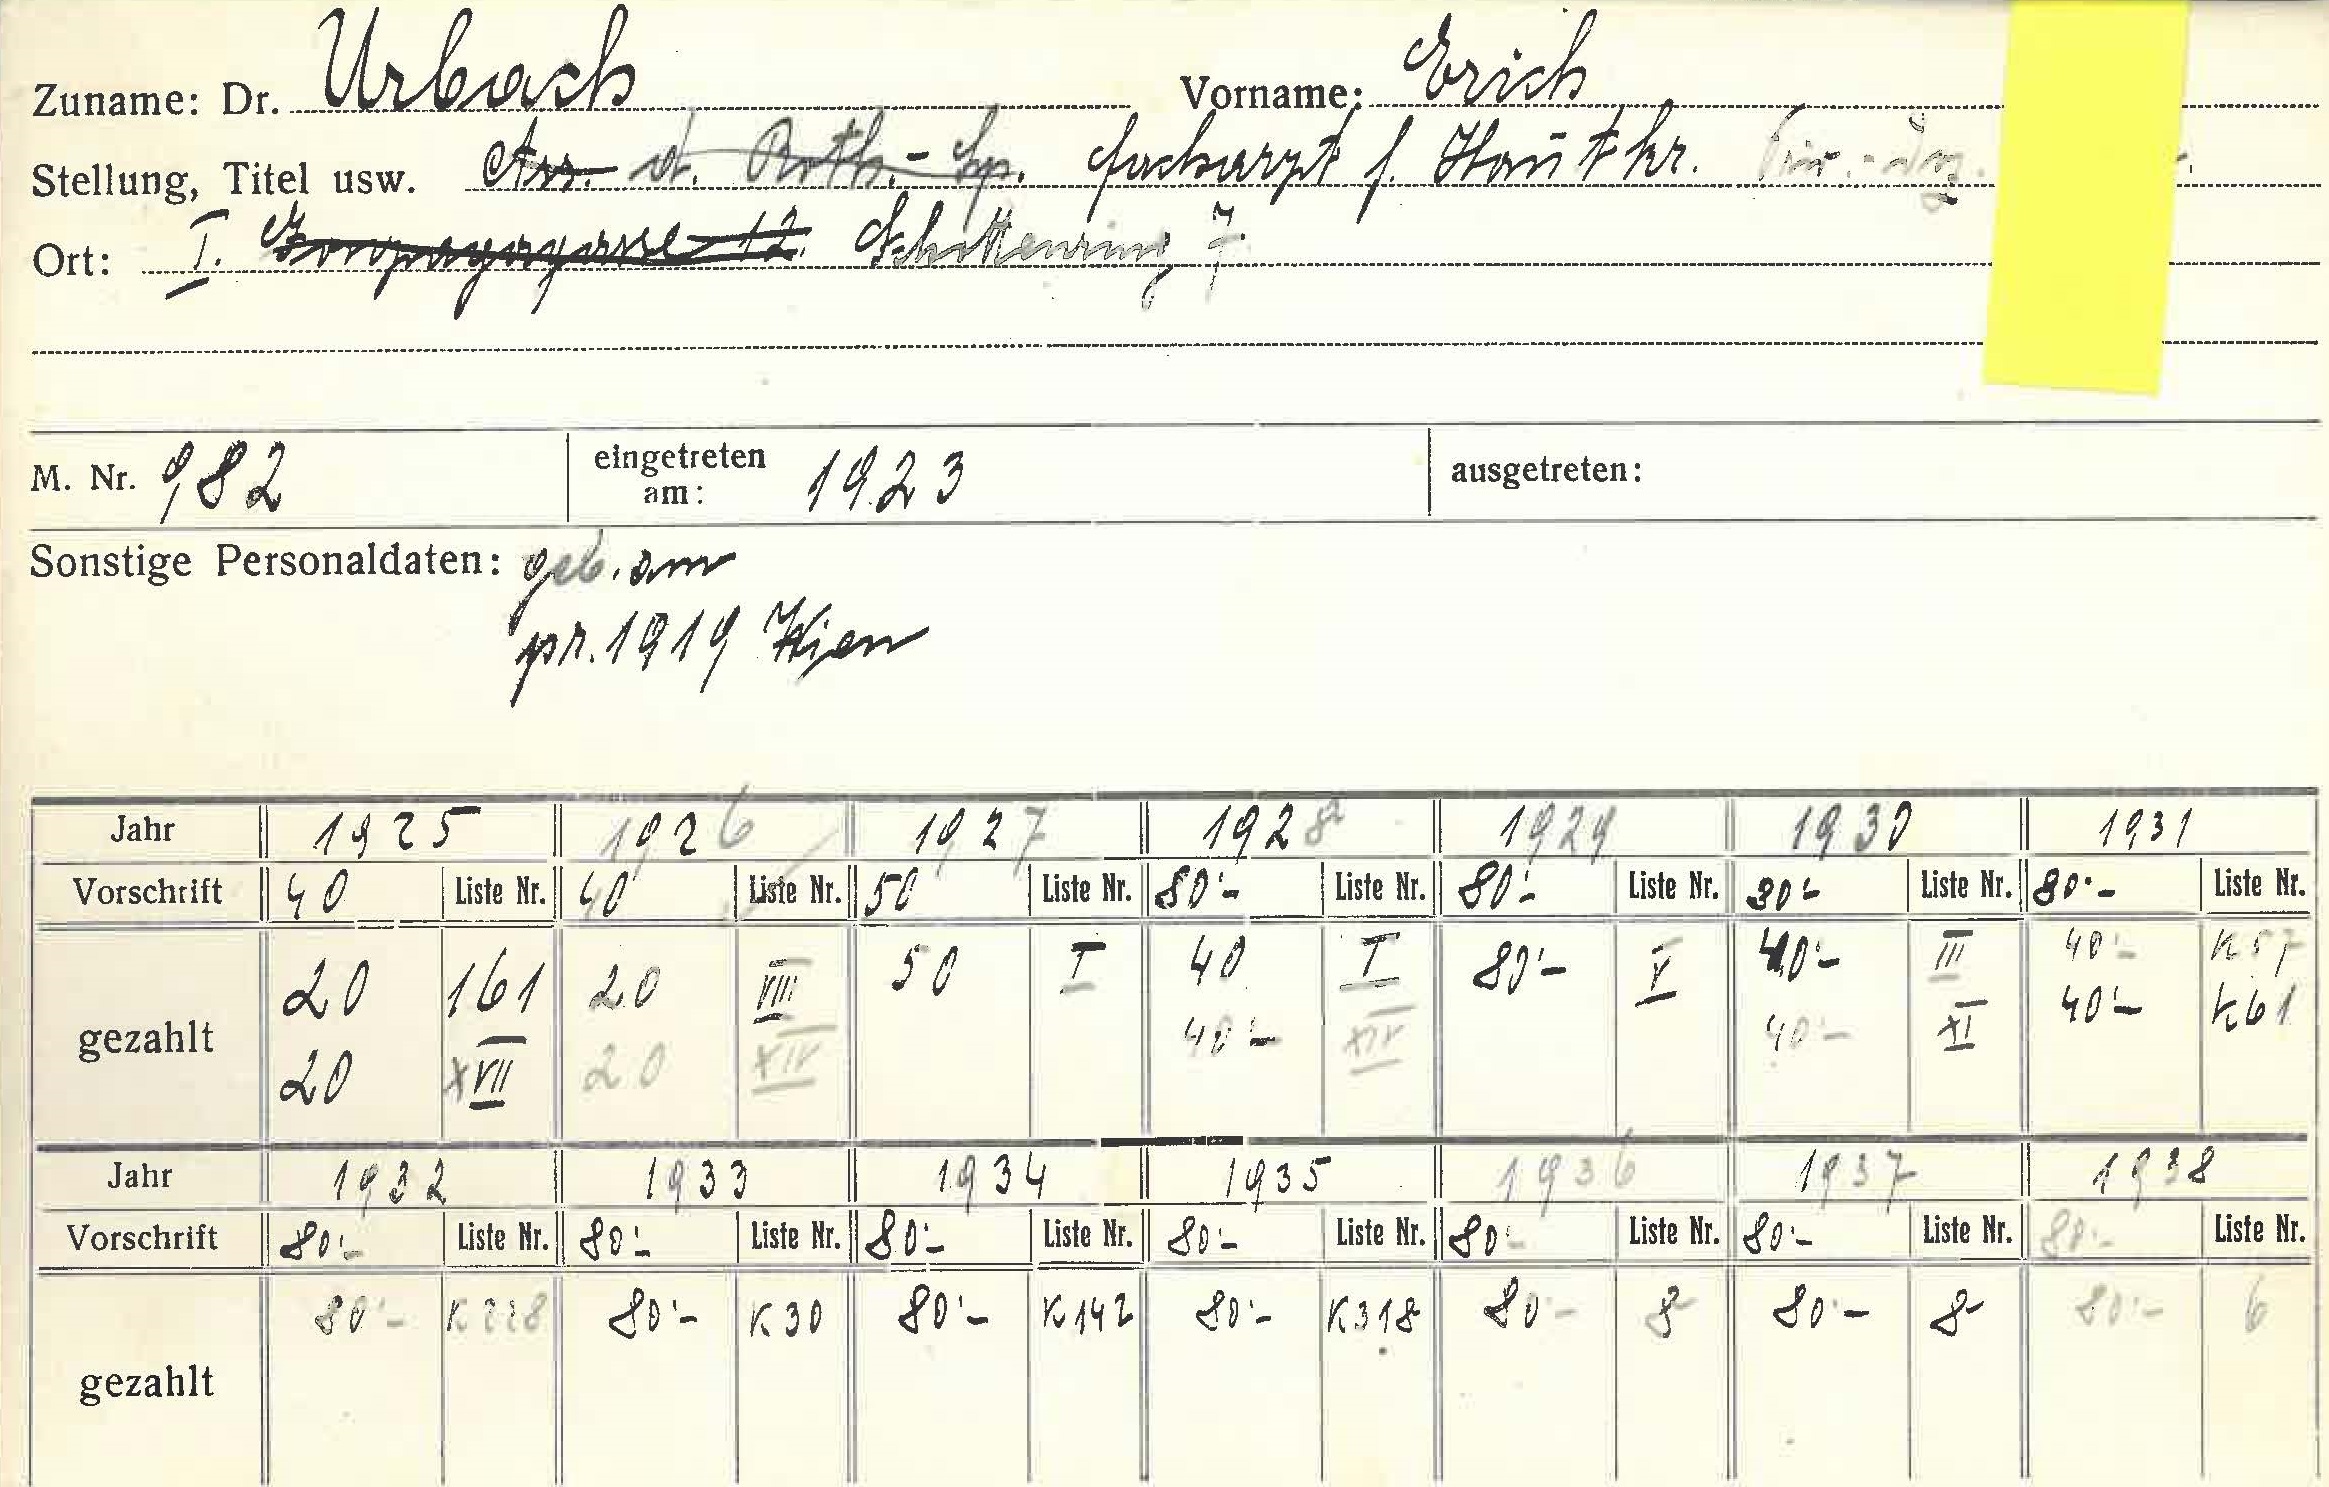 Zuname: Dr. Urbach Vorname: Erich
Stellung, Titel usw. Ass. d. Roth.-Sp. Facharzt f. Hautkr. Priv.-Doz.
Ort: I. 12. Schottenring 7.
M. Nr. 982 eingetreten am: 1923 ausgetreten:
Sonstige Personaldaten: geb. am
pr. 1919 Wien
Jahr 1925 1926 1927 1928 1929 1930 1931
Vorschrift 40 Liste Nr. 40 Liste Nr. 50 Liste Nr. 80.- Liste Nr. 80.- Liste Nr. 80.- Liste Nr. 80.- Liste Nr.
gezahlt 20 161 20 VIII 50 I 40 I 80.- V 40.- III 40.- K 57
20 XVII 20 XIV 40.- XIV 40.- XI 40.- K 61
Jahr 1932 1933 1934 1935 1936 1937 1938
Vorschrift 80.- Liste Nr. 80.- Liste Nr. 80.- Liste Nr. 80.- Liste Nr. 80.- Liste Nr. 80.- Liste Nr. 80.- Liste Nr.
gezahlt 80.- K 228 80.- K 30 80.- K 142 80.- K 318 80.- 8 80.- 8 80.- 6